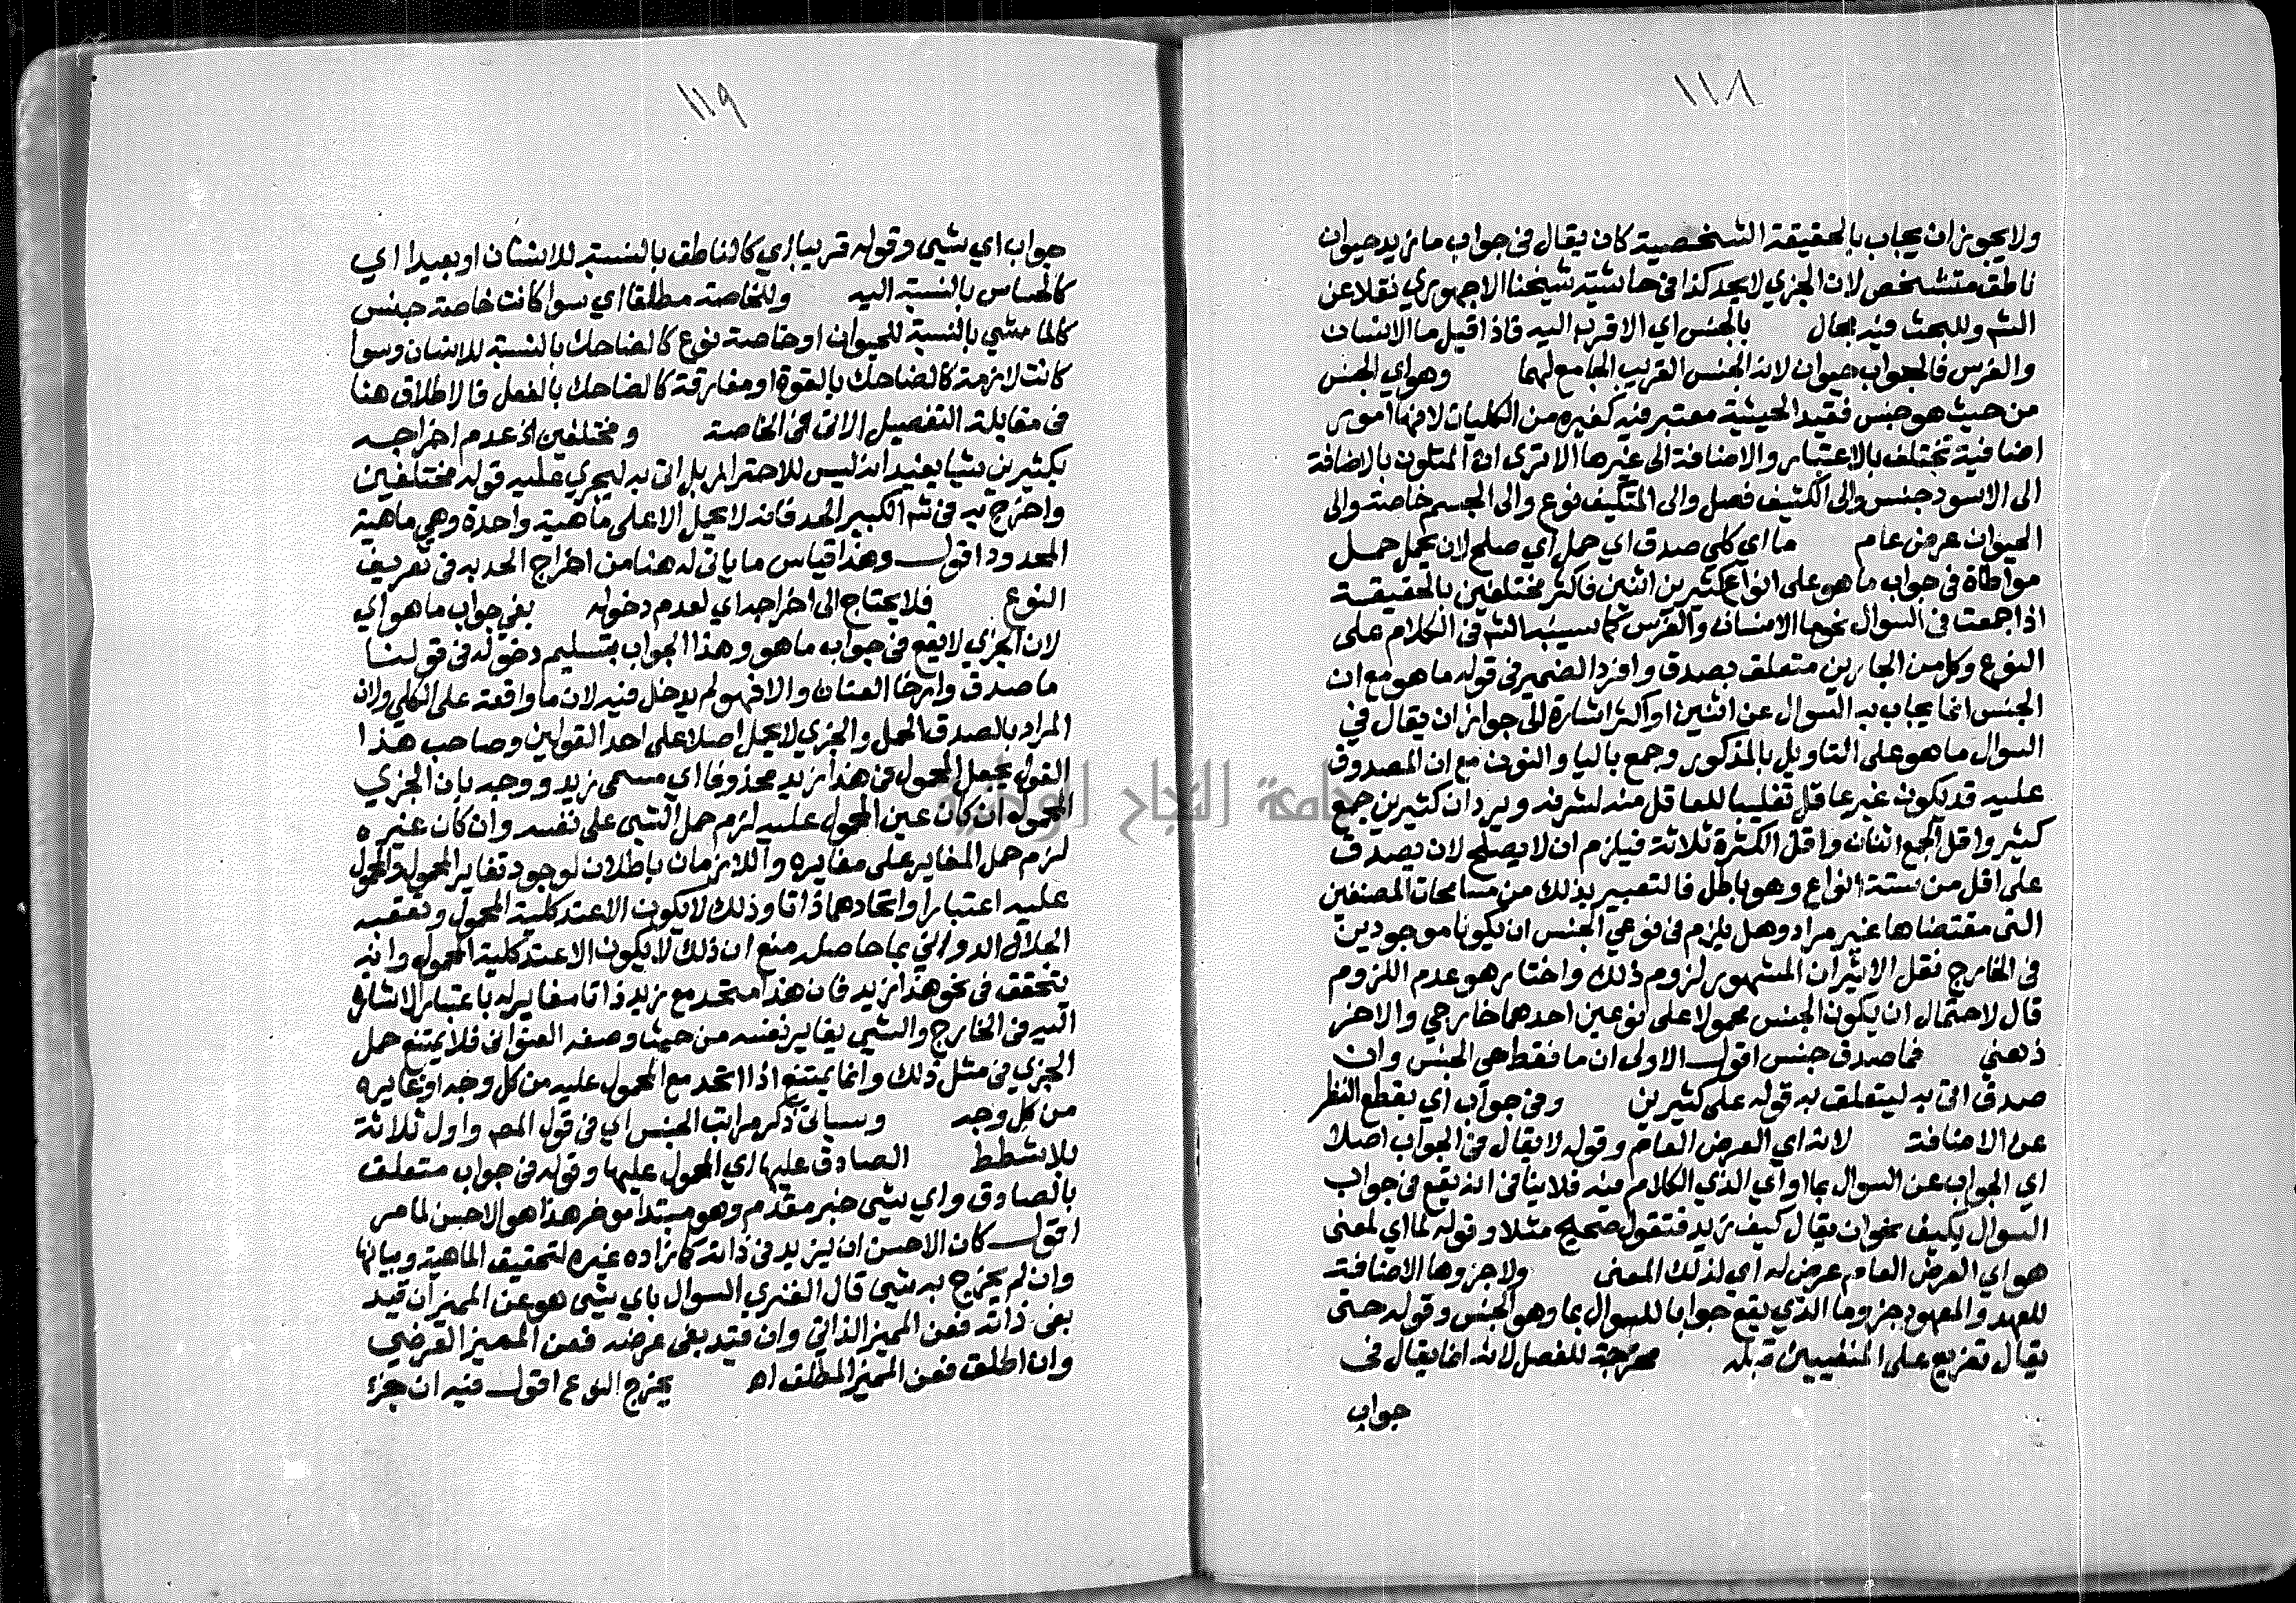 ١١٨
ولا يجوز ان يجاب بالحقيقة الشخصية كان يقال في جواب ما زيد حيوان
ناطق متشخص لان الجزي لا يحد كذا في حاشية شيخنا الاجهوري نقلا عن
الشم وللبحث فيه مجال بالجنس اي الاقرب اليه فاذا قيل ما الانسان
والفرس فالجواب حيوان لانه الجنس القريب الجامع لهما وهو اي الجنس
من حيث هو جنس فقيد الحيثية معتبر فيه كغيره من الكليات لانها امور
اضافية تختلف بالاعتبار والاضافة الى غيرها الا ترى ان المتلون بالاضافة
الى الاسود جنس والى الكثيف فصل والى المتكيف نوع والى الجسم خاصة والى
الحيوان عرض عام ما اي كلي صدق اي حمل اي صلح لان يحمل حمل
مواطاة في جواب ما هو على انواع كثيرين اثنين فاكثر مختلفين بالحقيقة
اذا جمعت في السوال نحو ما الانسان والفرس كما سيبينه الشم في الكلام على
النوع وكل من الجارين متعلق بصدق وافرد الضمير في قوله ما هو مع ان
الجنس انما يجاب به السوال عن اثنين او اكثر اشارة الى جواز ان يقال في
السوال ما هو على التاويل بالمذكور وجمع باليا والنون مع ان المصدوق
عليه قد يكون غير عاقل تغليبا للعاقل منه لشرفه ويرد ان كثيرين جمع
كثير واقل الجمع اثنان واقل الكثرة ثلاثة فيلزم ان لا يصلح لان يصدق
على اقل من ستة انواع وهو باطل فالتعبير بذلك من مسامحات المصنفين
التي مقتضاها غير مراد وهل يلزم في نوعي الجنس ان يكونا موجودين
في الخارج نقل الاثير ان المشهور لزوم ذلك واختار هو عدم اللزوم
قال لاحتمال ان يكون الجنس محمولا على نوعين احدهما خارجي والاخر
ذهني فما صدق جنس اقول الاولى ان ما فقط هي الجنس وان
صدق اتى به ليتعلق به قوله على كثيرين وفي جواب اي بقطع النظر
عن الاضافة لانه اي العرض العام وقوله لا يقال في الجواب اصلا
اي الجواب عن السوال بما او اي الذي الكلام فيه فلا ينافي انه يقع في جواب
السوال بكيف نحو ان يقال كيف زيد فتقول صحيح مثلا وقوله لما اي لمعنى
هو اي العرض العام عرض له اي لذلك المعنى ولا جزوها الاضافة
للعهد والمعهود جزوها الذي يقع جوابا للسوال بما وهو الجنس وقوله حتى
يقال تفريع على المنفيين قبله مخرجة للفصل لانه انما يقال في
جواب
١١٩
جواب اي شي وقوله قريبا اي كالناطق بالنسبة للانسان او بعيدا اي
كالحساس بالنسبة اليه وللخاصة مطلقا اي سوا كانت خاصة جنس
كالماشي بالنسبة للحيوان او خاصة نوع كالضاحك بالنسبة للانسان وسوا
كانت لازمة كالضاحك بالقوة او مفارقة كالضاحك بالفعل فالاطلاق هنا
في مقابلة التفصيل الاتي في الخاصة ومختلفين الخ عدم اخراجه
بكثيرين شيا يفيد انه ليس للاحتراز بل اتى به ليجري عليه قوله مختلفين
واخرج به في شم الكبير الحد فانه لا يحمل الا على ماهية واحدة وهي ماهية
المحدود اقول وهذا قياس ما ياتي له هنا من اخراج الحد به في تعريف
النوع فلا يحتاج الى اخراجه اي لعدم دخوله بفي جواب ما هو اي
لان الجزي لا يقع في جواب ما هو وهذا الجواب بتسليم دخوله في قولنا
ما صدق وارخا العنان والا فهو لم يدخل فيه لان ما واقعة على الكلي ولان
المراد بالصدق الحمل والجزي لا يحمل اصلا على احد القولين وصاحب هذا
القول يجعل المحمول في هذا زيد محذوفا اي مسمى زيد ووجه بان الجزي
المحمول ان كان عين المحمول عليه لزم حمل الشي على نفسه وان كان غيره
لزم حمل المغاير على مغايره واللازمان باطلان لوجود تغاير المحمول والمحمول
عليه اعتبارا واتحادهما ذاتا وذلك لا يكون الا عند كلية المحمول وتعقبه
الجلال الدواني بما حاصله منع ان ذلك لا يكون الا عند كلية المحمول وانه
يتحقق في نحو هذا زيد فان هذا متحد مع زيد ذاتا مغاير له باعتبار الاشارة
اليه في الخارج والشي يغاير نفسه من حيث وصفه العنواني فلا يمتنع حمل
الجزي في مثل ذلك وانما يمتنع اذا اتحد مع المحمول عليه من كل وجه او غايره
من كل وجه وسياتي ذكر مراتب الجنس اي في قول المصـ واول ثلاثة
بلا شطط الصادق عليها اي المحمول عليها وقوله في جواب متعلق
بالصادق واي شي خبر مقدم وهو مبتدا موخر هذا هو الاحسن لما مر
اقول كان الاحسن ان يزيد في ذاته كما زاده غيره لتحقيق الماهية وبيانها
وان لم يخرج به شي قال الغنري السوال باي شي هو عن المميز ان قيد
بفي ذاته فعن المميز الذاتي وان قيد بفي عرضه فعن المميز العرضي
وان اطلق فعن المميز المطلق اهـ يخرج النوع اقول فيه ان جزء
جامعة النجاح الوطنية